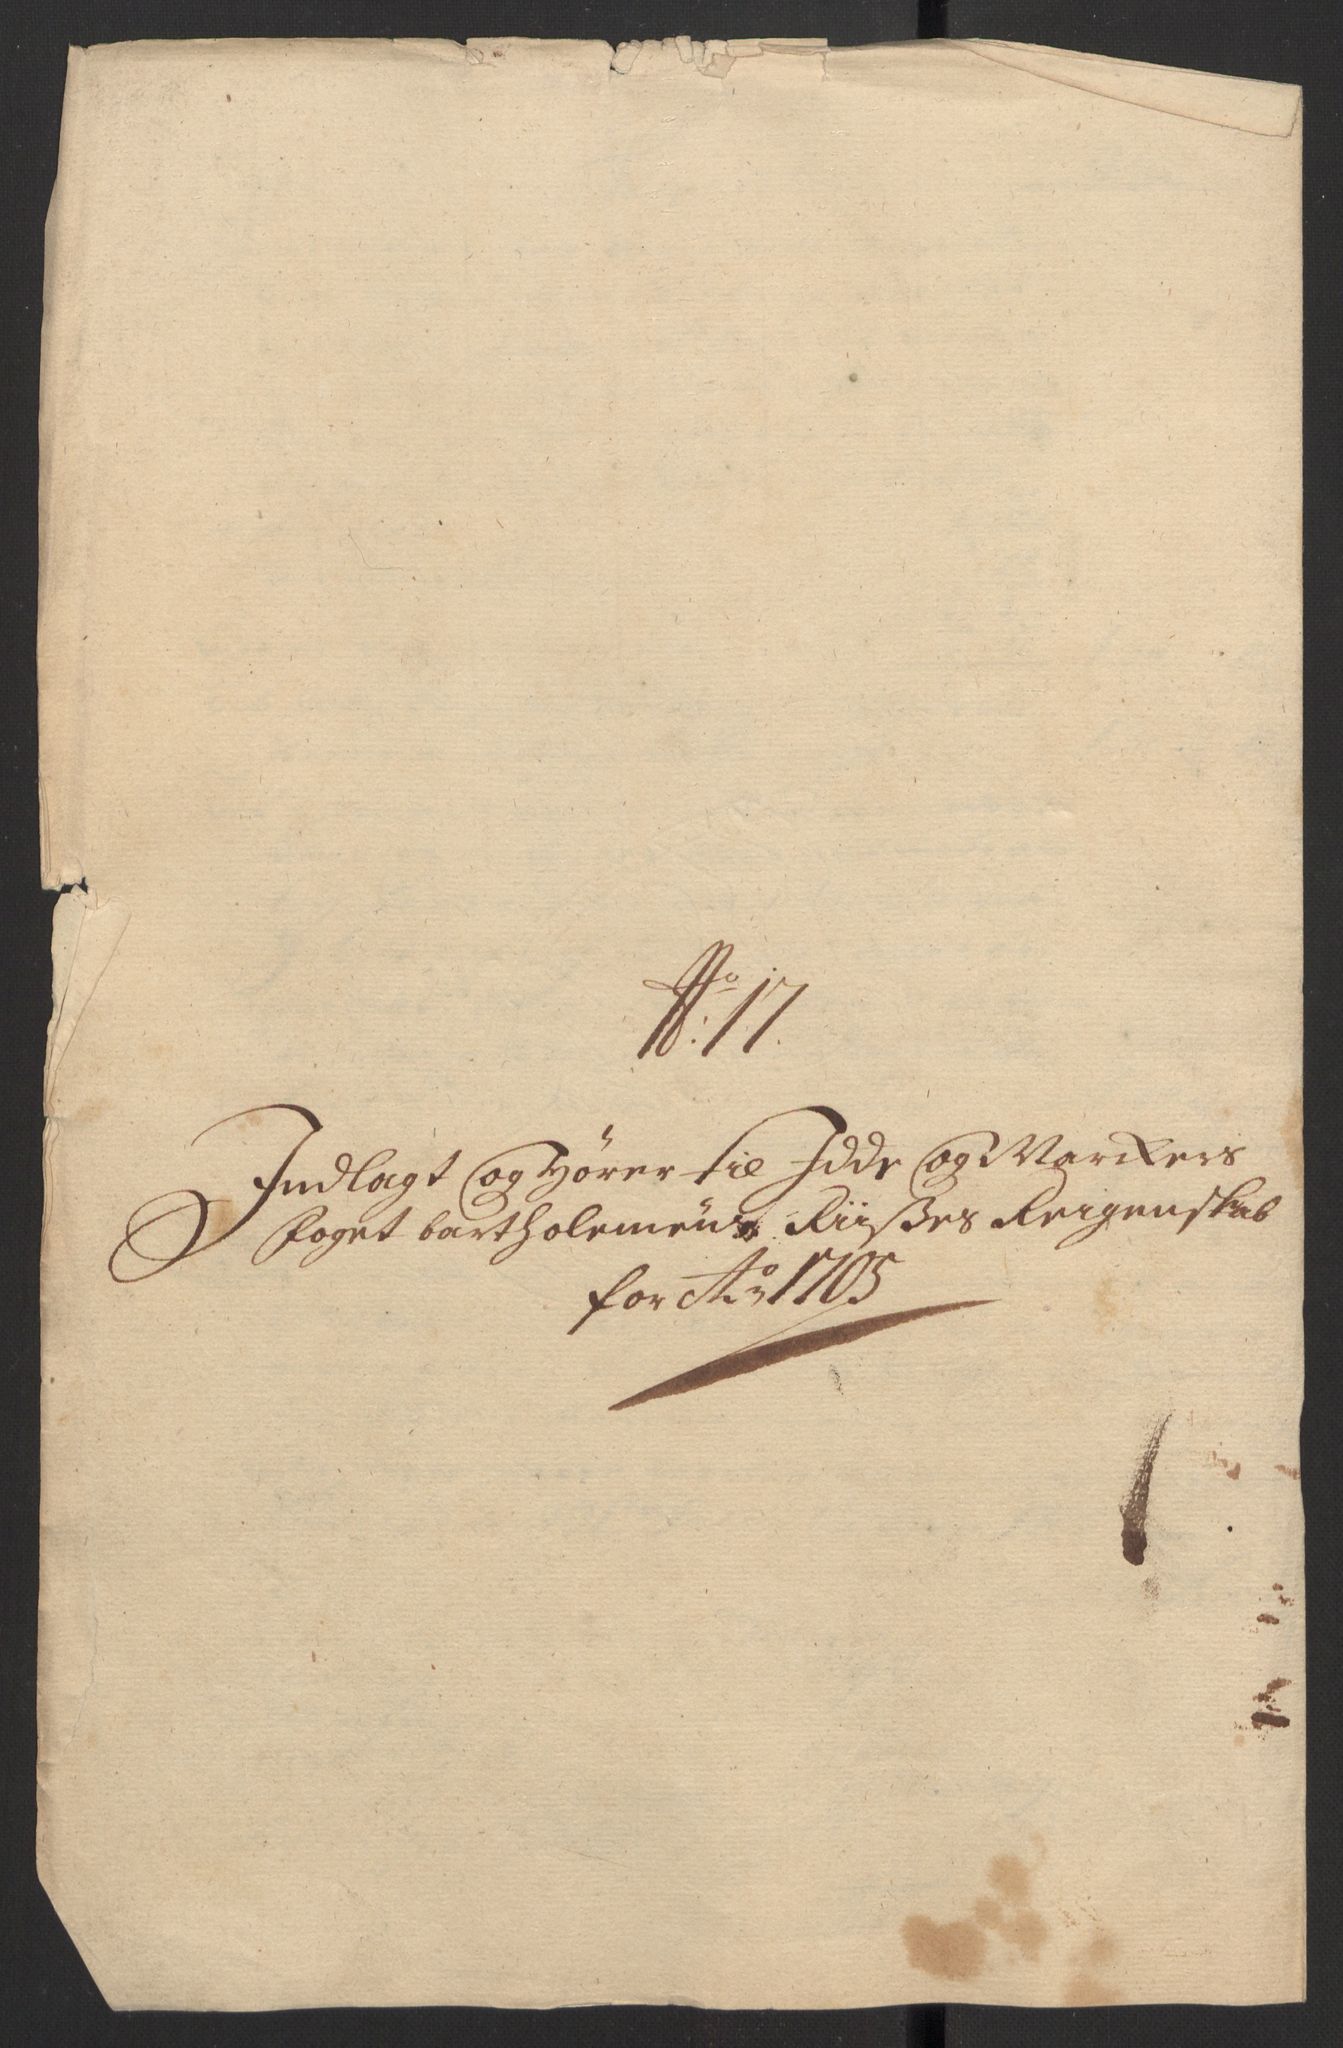 No: 17.
Indlagt og Hører til Idde og Marckers
foget bartholemeus Riisßes Reigenskab
for Ao 1705